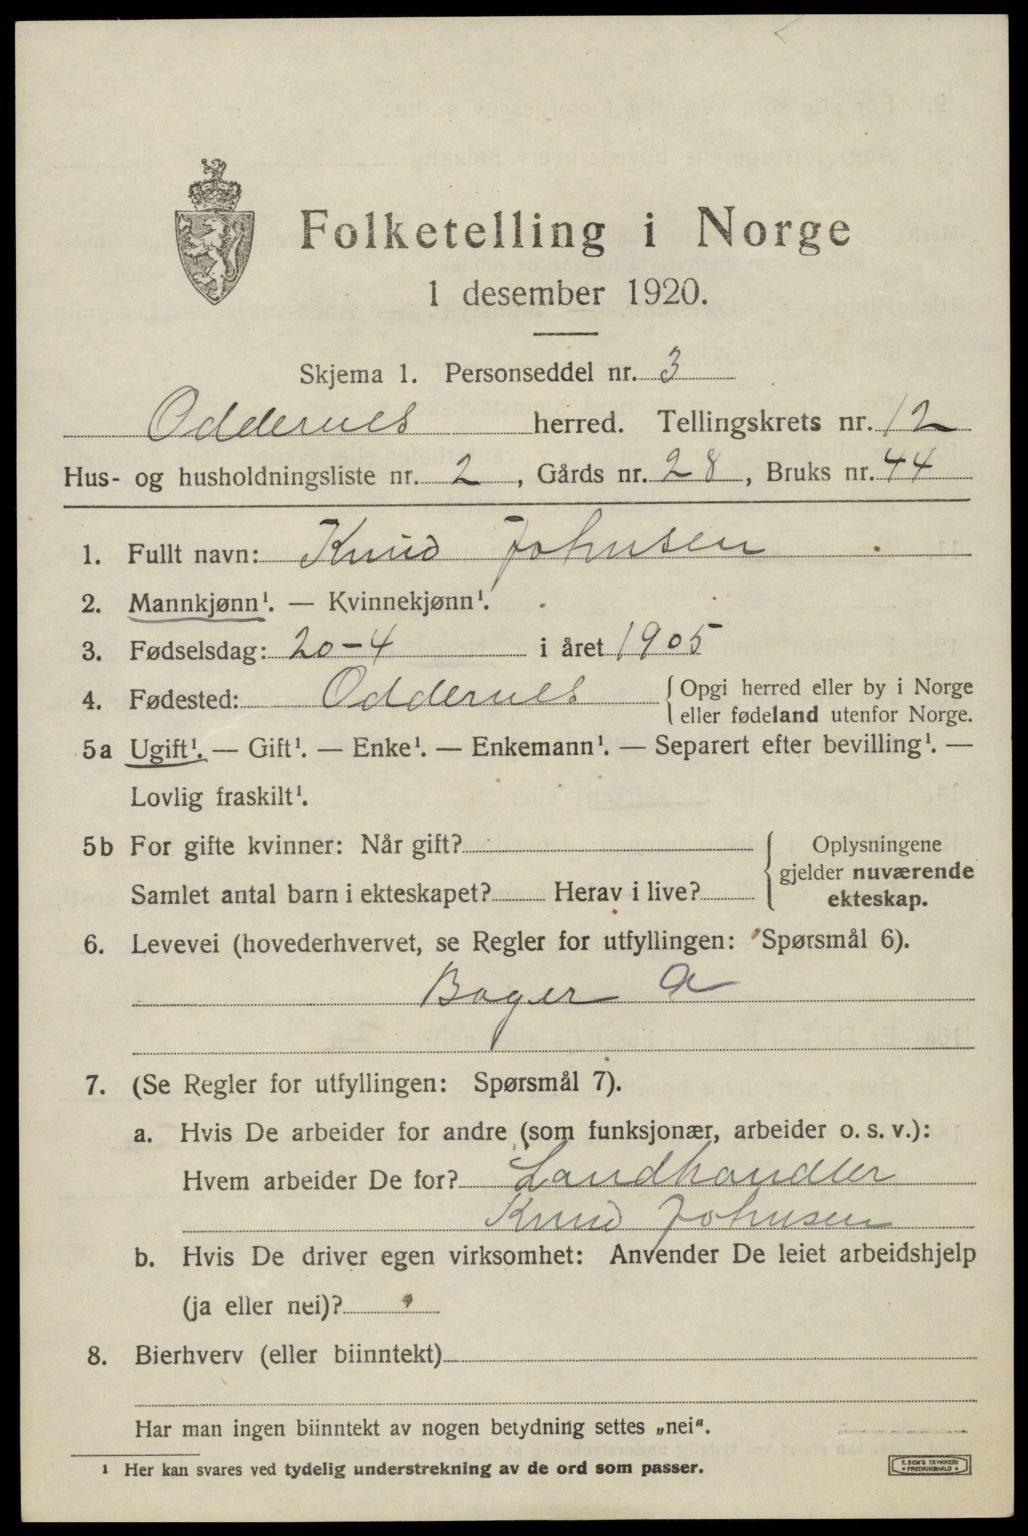 Folketelling i Norge
1 desember 1920.
Skjema 1. Personseddel nr. 3
Oddernes herred. Tellingskrets nr. 12
Hus- og husholdningsliste nr. 2, Gårds nr. 28, Bruks nr. 44
1. Fullt navn: Knud Johnsen
2. Mannkjønn¹. — Kvinnekjønn¹.
3. Fødselsdag: 20-4 i året 1905
4. Fødested: Oddernes {Opgi herred eller by i Norge
eller fødeland utenfor Norge.
5a Ugift¹. — Gift¹. — Enke¹. — Enkemann¹. — Separert efter bevilling¹. —
Lovlig fraskilt¹.
5b For gifte kvinner: Når gift? { Oplysningene
gjelder nuværende
Samlet antal barn i ekteskapet? Herav i live? ekteskap.
6. Levevei (hovederhvervet, se Regler for utfyllingen: Spørsmål 6).
Bager a
7. (Se Regler for utfyllingen: Spørsmål 7).
a. Hvis De arbeider for andre (som funksjonær, arbeider o. s. v.):
Hvem arbeider De for? Landhandler
Knud Johnsen
b. Hvis De driver egen virksomhet: Anvender De leiet arbeidshjelp
(ja eller nei)?
8. Bierhverv (eller biinntekt)
Har man ingen biinntekt av nogen betydning settes „nei“.
¹ Her kan svares ved tydelig understrekning av de ord som passer.
E. SEM'S TRYKKERI
* FREDRIKSHALD *